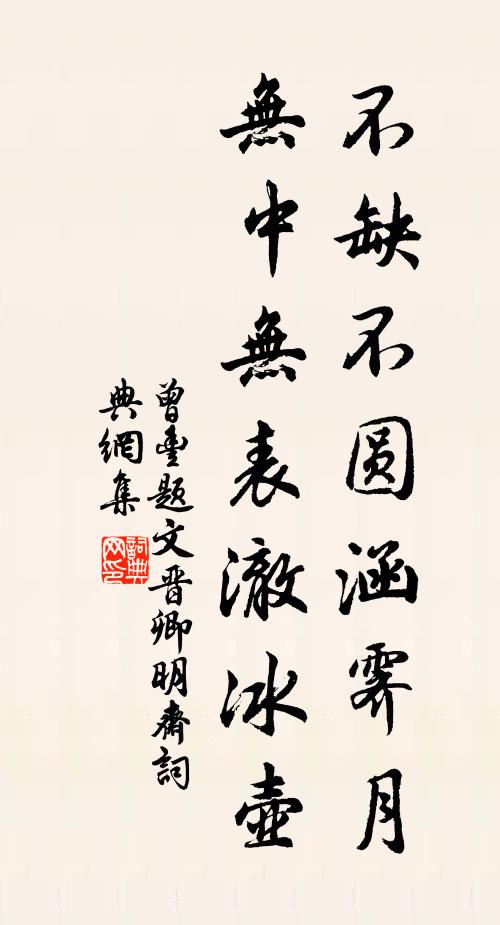 不缺不圆涵霁月
無中無表澈冰壺
曾豊题文晋卿明齋詞
典網集
詞典
网印